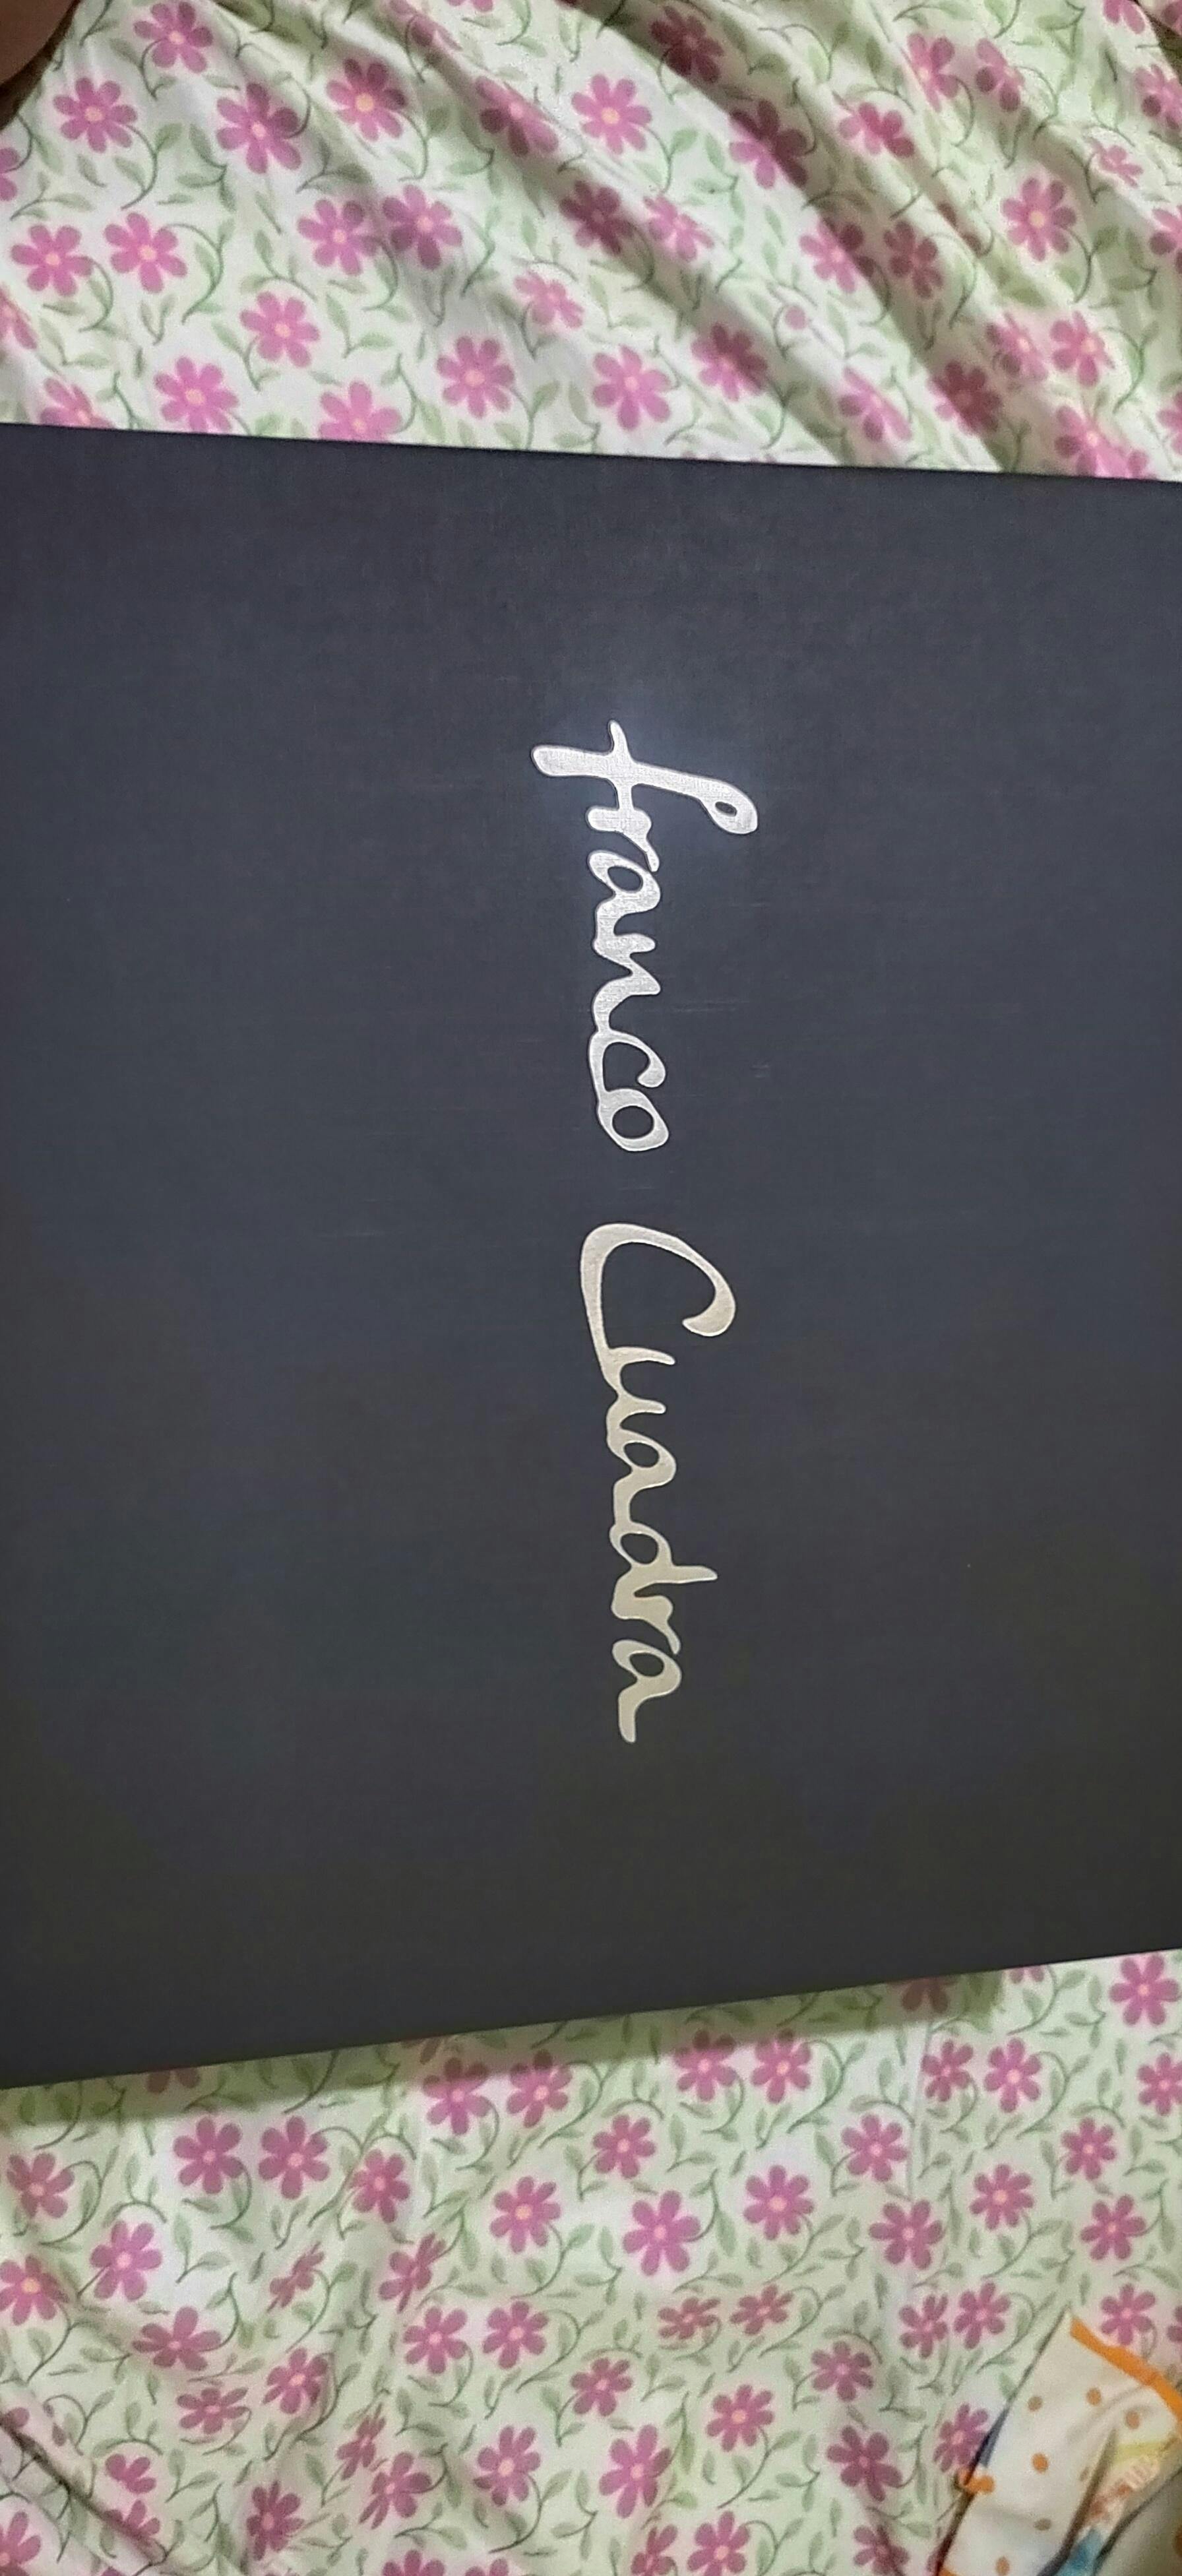 franco Cuadra